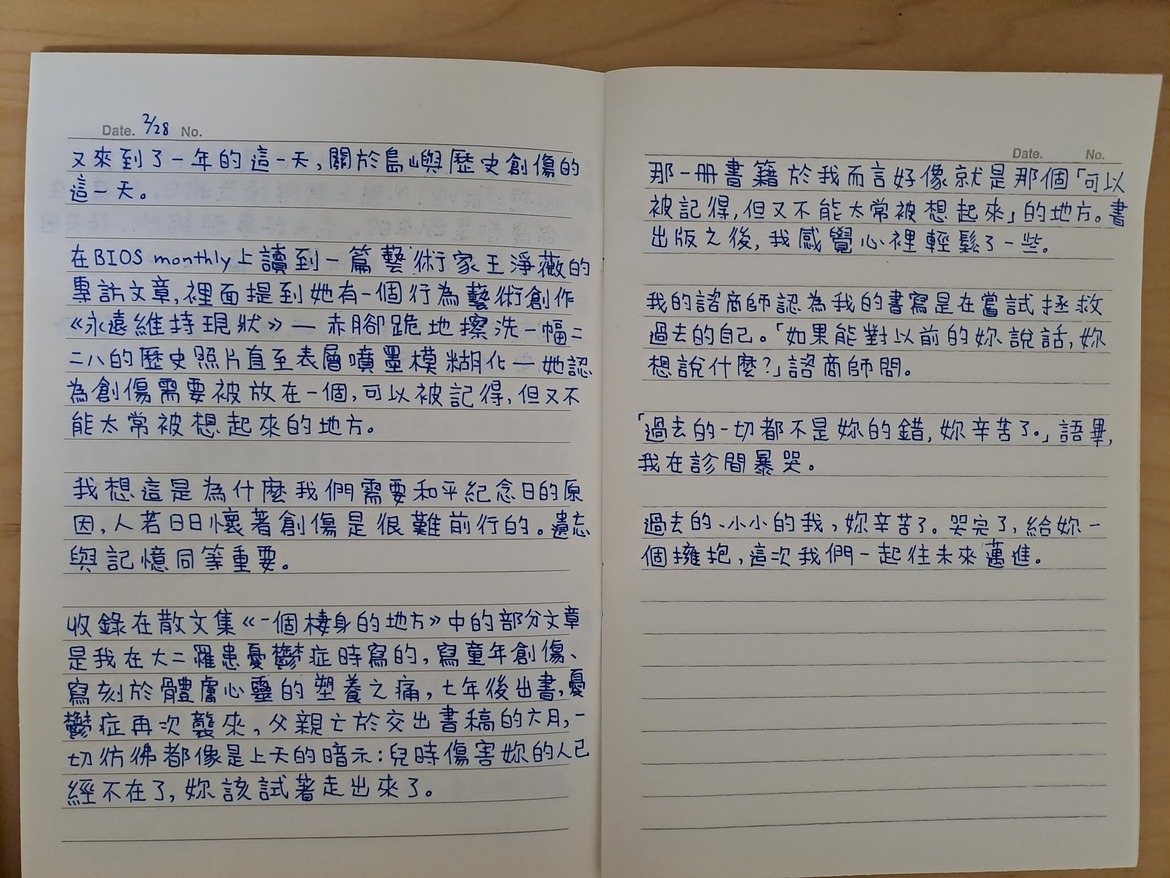 Date. 2/28 No.
又來到了一年的這一天,關於島嶼歷史創傷的
這一天。
在BIOS monthly上讀到一篇藝術家王淨薇的
專訪文章,裡面提到她有一個行為藝術創作
《永遠維持現狀》— 赤腳跪地擦洗一幅二
二八的歷史照片直至表層噴墨模糊化 — 她認
為創傷需要被放在一個,可以被記得,但又不
能太常被想起來的地方。
我想這是為什麼我們需要和平紀念日的原
因,人若日日懷著創傷是很難前行的。遺忘
與記憶同等重要。
收錄在散文集《一個棲身的地方》中的部分文章
是我在大二罹患憂鬱症時寫的,寫童年創傷、
寫刻於體膚心靈的塑養之痛,七年後出書,憂
鬱症再次襲來,父親亡於交出書稿的六月,一
切彷彿都像是上天的暗示:兒時傷害妳的人已
經不在了,妳該試著走出來了。
Date. No.
那一冊書籍於我而言好像就是那個「可以
被記得,但又不能太常被想起來」的地方。書
出版之後,我感覺心裡輕鬆了一些。
我的諮商師認為我的書寫是在嘗試拯救
過去的自己。「如果能對以前的妳說話,妳
想說什麼?」諮商師問。
「過去的一切都不是妳的錯,妳辛苦了。」語畢,
我在診間暴哭。
過去的、小小的我,妳辛苦了。哭完了,給妳一
個擁抱,這次我們一起往未來邁進。